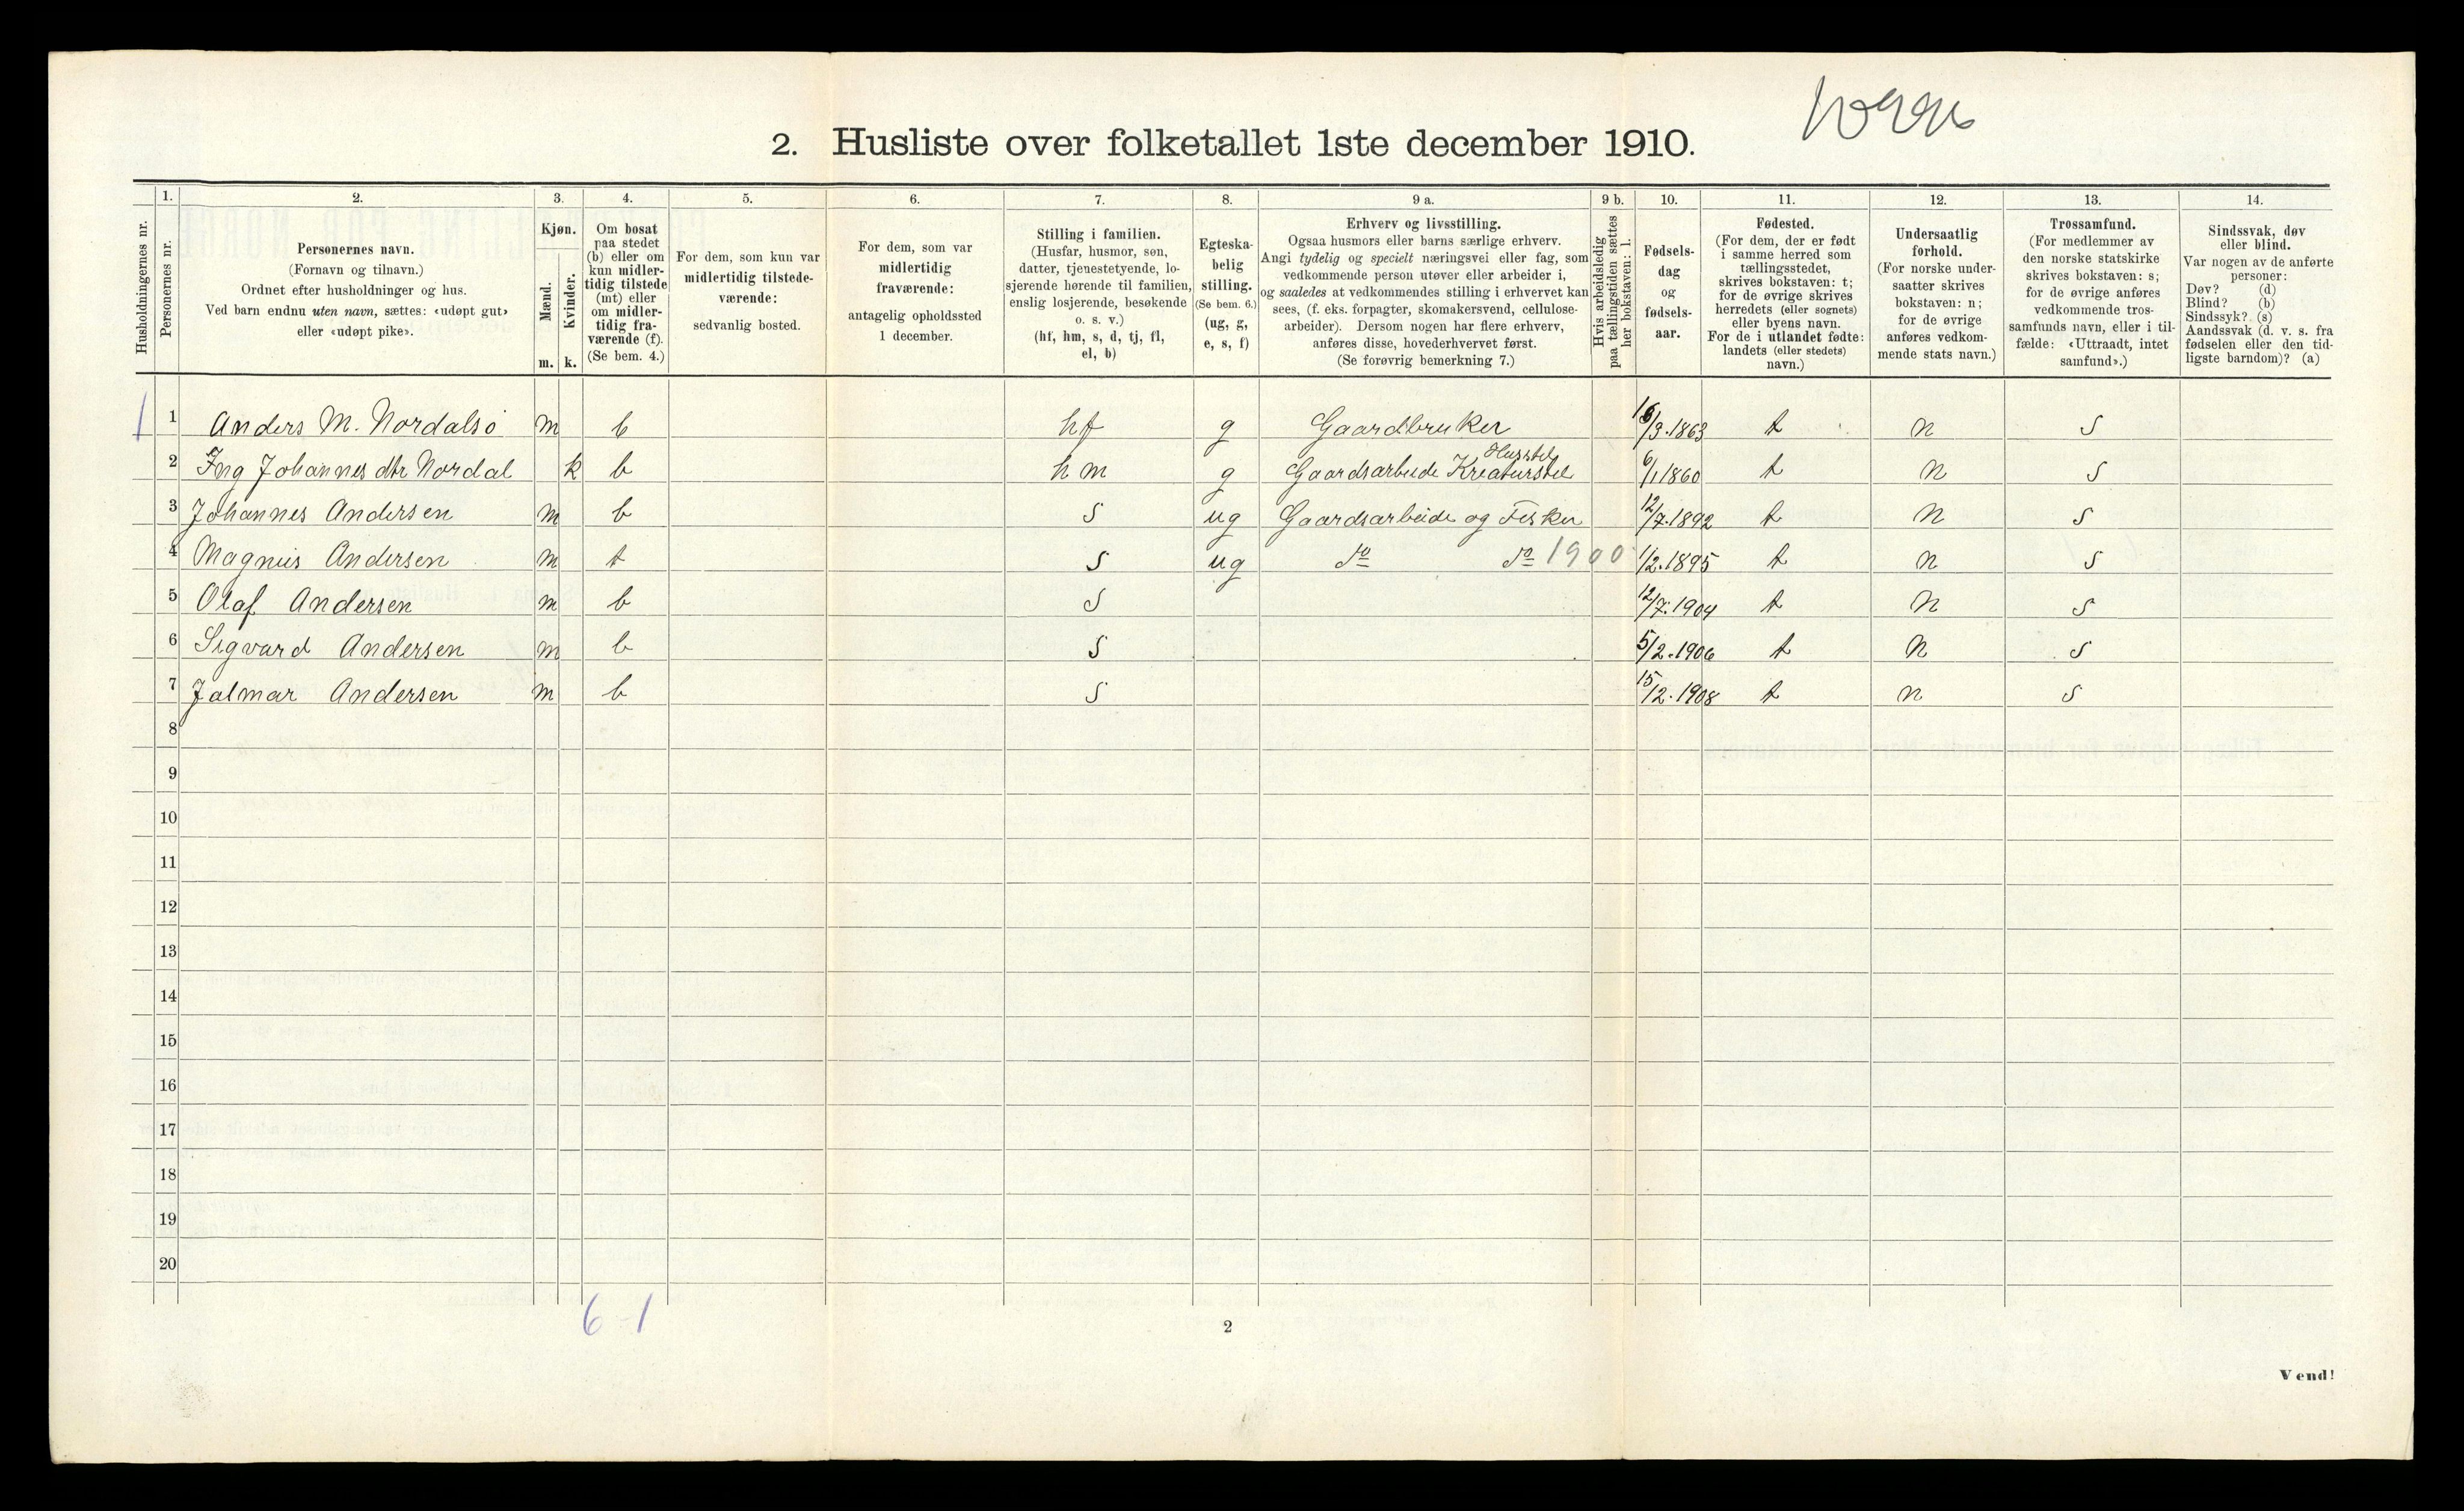 2. Husliste over folketallet 1ste december 1910.
1. 2. 3. 4. 5. 6. 7. 8. 9 a. 9 b. 10. 11. 12. 13. 14.
Husholdningernes nr.
Personernes nr.
Personernes navn.
(Fornavn og tilnavn.)
Ordnet efter husholdninger og hus.
Ved barn endnu uten navn, sættes: «udøpt gut»
eller «udøpt pike».
Kjøn.
Mænd.
Kvinder.
m. k.
Om bosat
paa stedet
(b) eller om
kun midler-
tidig tilstede
(mt) eller
om midler-
tidig fra-
værende (f).
(Se bem. 4.)
For dem, som kun var
midlertidig tilstede-
værende:
sedvanlig bosted.
For dem, som var
midlertidig
fraværende:
antagelig opholdssted
1 december.
Stilling i familien.
(Husfar, husmor, søn,
datter, tjenestetyende, lo-
sjerende hørende til familien,
enslig losjerende, besøkende
o. s. v.)
(hf, hm, s, d, tj, fl,
el, b)
Egteska-
belig
stilling.
(Se bem. 6.)
(ug, g,
e, s, f)
Erhverv og livsstilling.
Ogsaa husmors eller barns særlige erhverv.
Angi tydelig og specielt næringsvei eller fag, som
vedkommende person utøver eller arbeider i,
og saaledes at vedkommendes stilling i erhvervet kan
sees, (f. eks. forpagter, skomakersvend, cellulose-
arbeider). Dersom nogen har flere erhverv,
anføres disse, hovederhvervet først.
(Se forøvrig bemerkning 7.)
Hvis arbeidsledig
paa tællingstiden sættes
her bokstaven: l.
Fødsels-
dag
og
fødsels-
aar.
Fødested.
(For dem, der er født
i samme herred som
tællingsstedet,
skrives bokstaven: t;
for de øvrige skrives
herredets (eller sognets)
eller byens navn.
For de i utlandet fødte:
landets (eller stedets)
navn.)
Undersaatlig
forhold.
(For norske under-
saatter skrives
bokstaven: n;
for de øvrige
anføres vedkom-
mende stats navn.)
Trossamfund.
(For medlemmer av
den norske statskirke
skrives bokstaven: s;
for de øvrige anføres
vedkommende tros-
samfunds navn, eller i til-
fælde: «Uttraadt, intet
samfund».)
Sindssvak, døv
eller blind.
Var nogen av de anførte
personer:
Døv? (d)
Blind? (b)
Sindssyk? (s)
Aandssvak (d. v. s. fra
fødselen eller den tid-
ligste barndom)? (a)
1 1 Anders M. Nordalsø m b hf g Gaardbruker 16/3.1863 t n s
Husstel
2 Ing Johannes dtr Nordal k b hm g Gaardsarbeide Kreaturstel 6/1 1860 t n s
3 Johannes Andersen m b s ug Gaardsarbeide og Fisker 12/7.1892 t n s
4 Magnus Andersen m t s ug do do 1900 1/2.1895 t n s
5 Olaf Andersen m b s 12/7.1904 t n s
6 Sigvard Andersen m b s 5/2.1906 t n s
7 Jalmar Andersen m b s 15/12.1908 t n s
8
9
10
11
12
13
14
15
16
17
18
19
20
6-1
2
Vend!